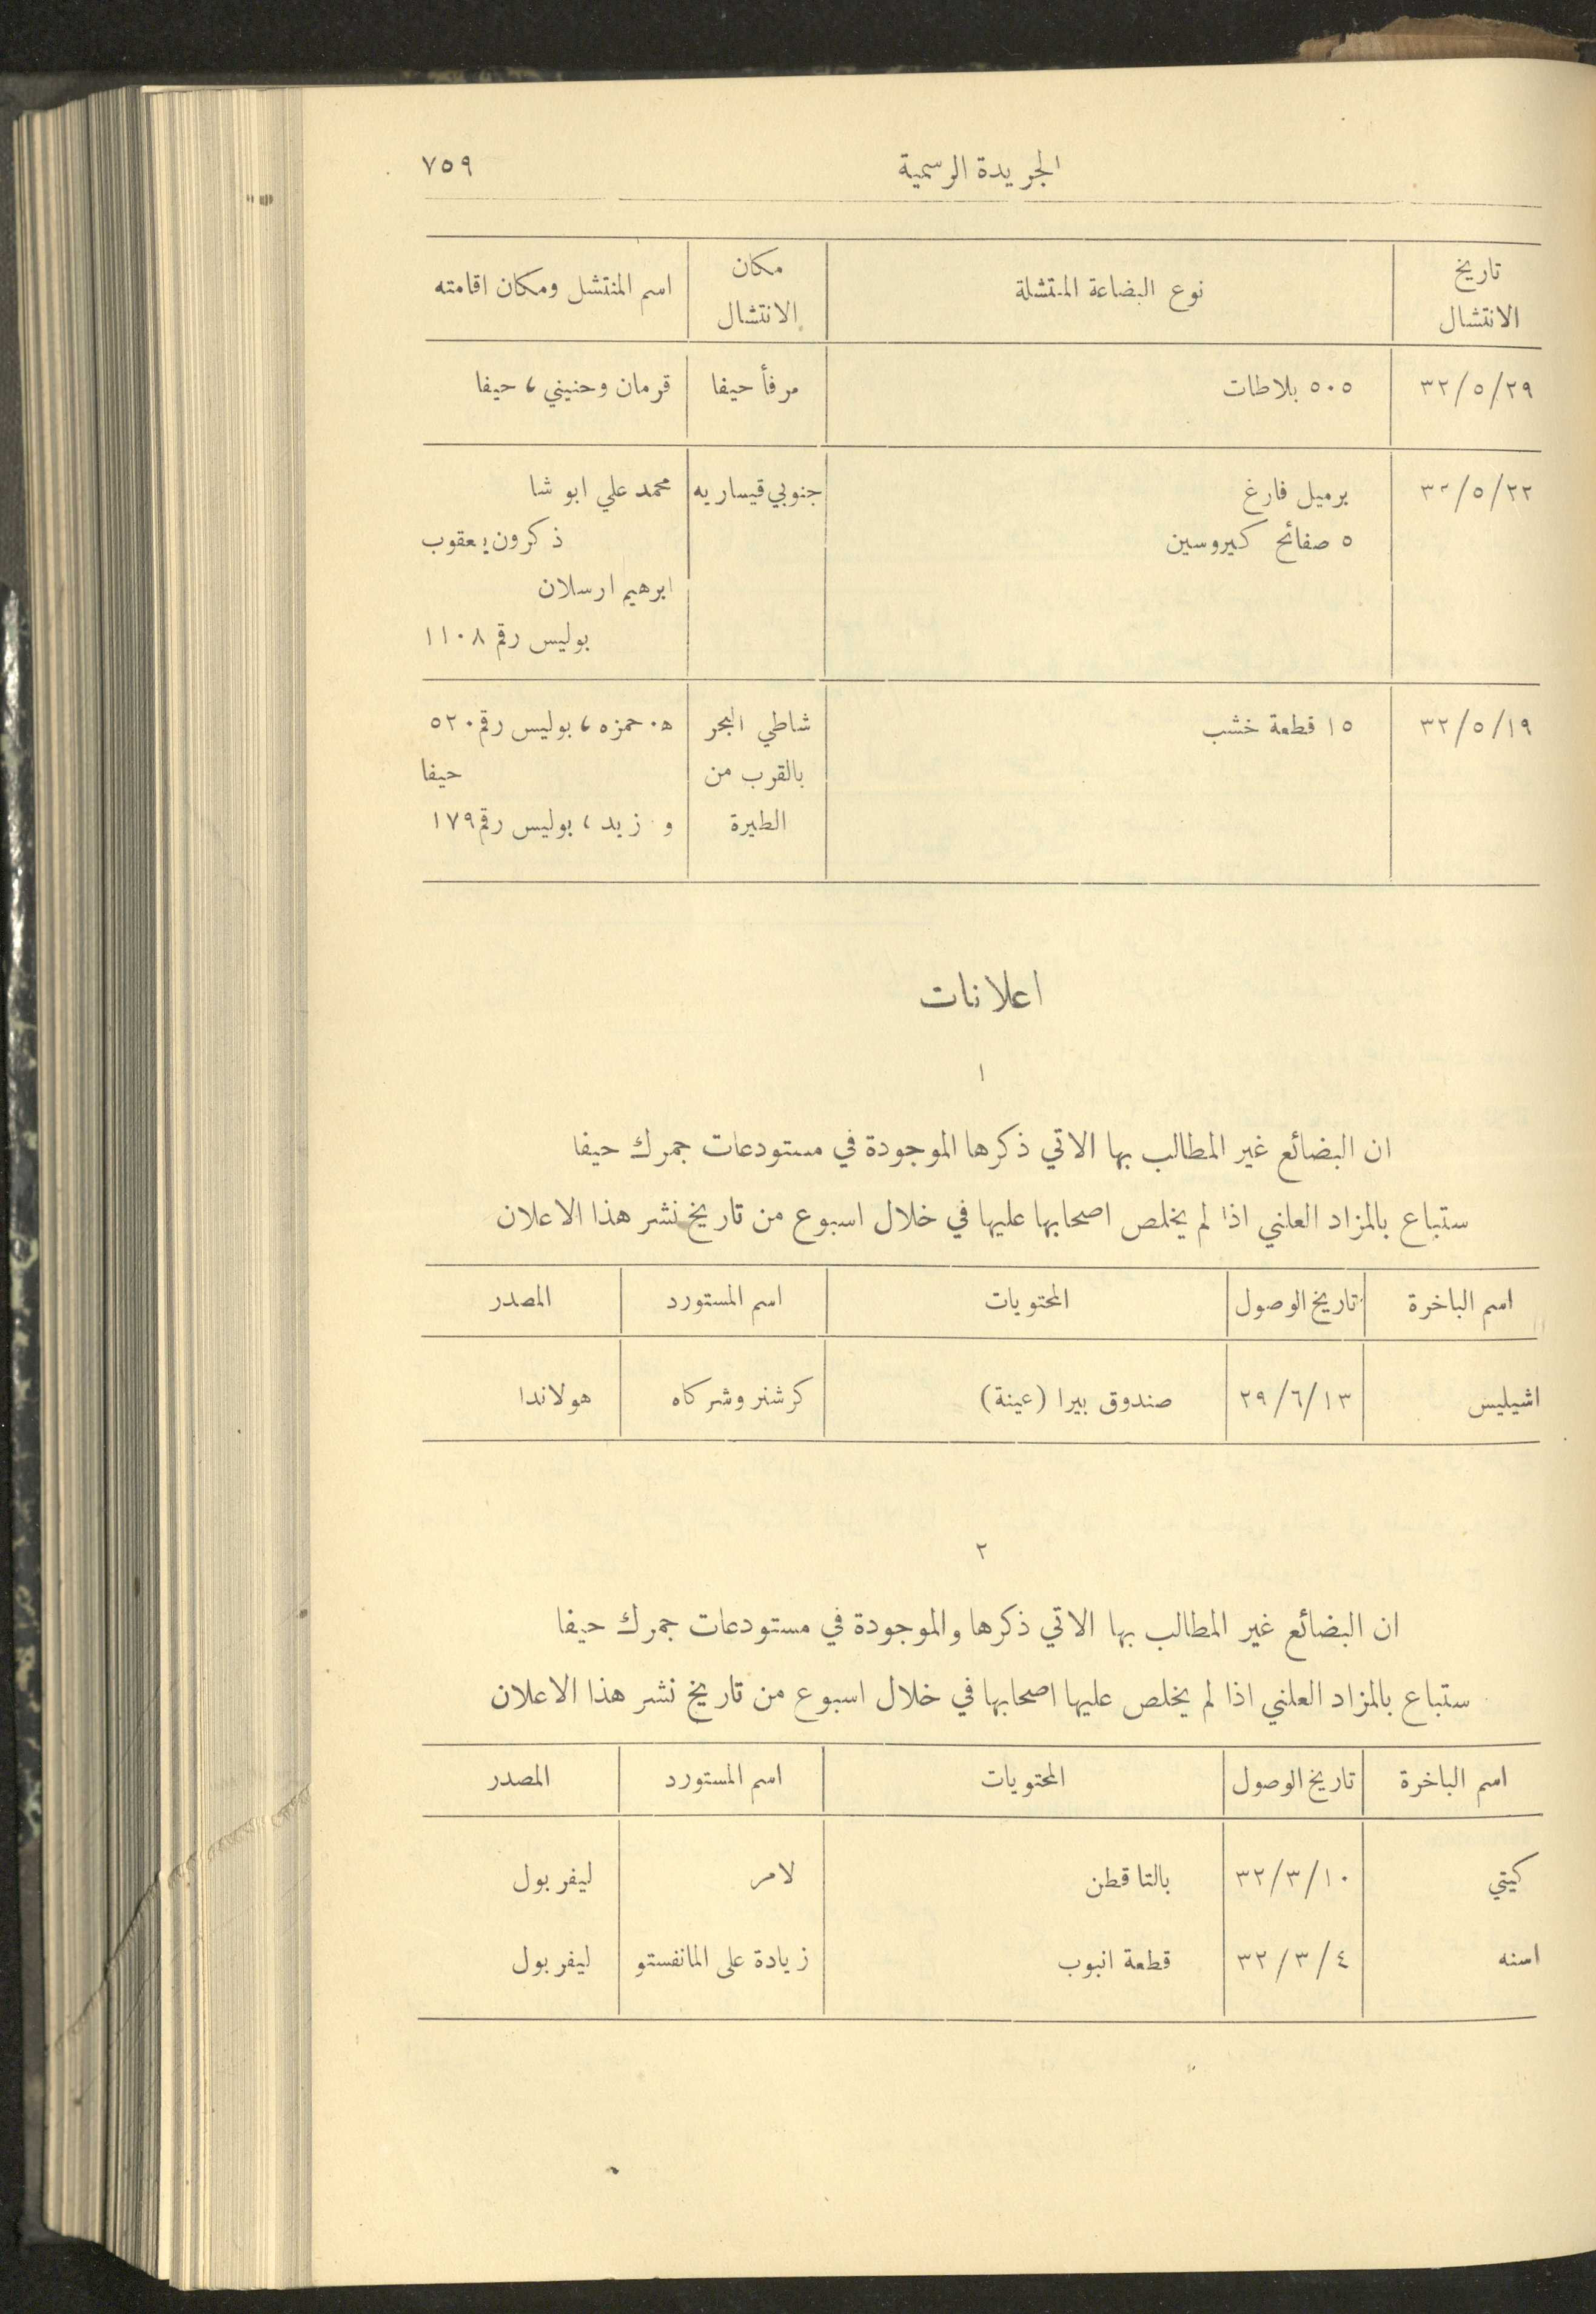 الجريدة الرسمية ٧٥٩
تاريخ الانتشال | نوع البضاعة المنتشلة | مكان الانتشال | اسم المنتشل ومكان اقامته
٣٢/٥/٢٩ | ٥٠٥ بلاطات | مرفأ حيفا | قرمان وحنيني، حيفا
٣٢/٥/٢٢ | برميل فارغ | جنوبي قيساريه | محمد علي ابو شا
٥ صفائح كيروسين | ذكرون يعقوب
ابرهيم ارسلان
بوليس رقم ١١٠٨
٣٢/٥/١٩ | ١٥ قطعة خشب | شاطي البحر | ه. حمزه، بوليس رقم ٥٢٠
بالقرب من | حيفا
الطيرة | و. زيد، بوليس رقم ١٧٩
اعلانات
١
ان البضائع غير المطالب بها الاتي ذكرها الموجودة في مستودعات جمرك حيفا
ستباع بالمزاد العلني اذا لم يخلص اصحابها عليها في خلال اسبوع من تاريخ نشر هذا الاعلان
اسم الباخرة | تاريخ الوصول | المحتويات | اسم المستورد | المصدر
اشيليس | ٢٩/٦/١٣ | صندوق بيرا (عينة) | كرشنر وشركاه | هولاندا
٢
ان البضائع غير المطالب بها الاتي ذكرها والموجودة في مستودعات جمرك حيفا
ستباع بالمزاد العلني اذا لم يخلص عليها اصحابها في خلال اسبوع من تاريخ نشر هذا الاعلان
اسم الباخرة | تاريخ الوصول | المحتويات | اسم المستورد | المصدر
كيتي | ٣٢/٣/١٠ | بالتا قطن | لامر | ليفربول
اسنه | ٣٢/٣/٤ | قطعة انبوب | زيادة على المانفستو | ليفربول